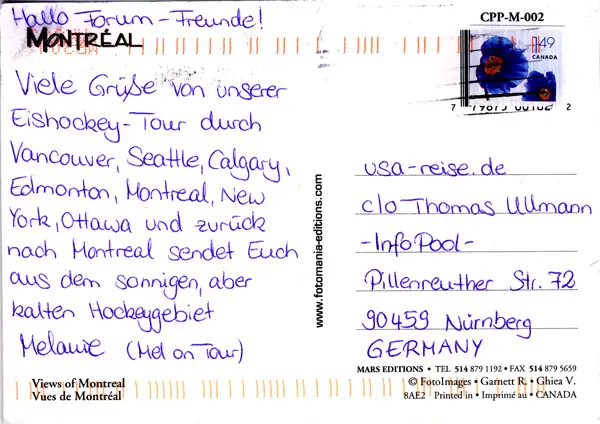 Hallo Forum-Freunde!
MONTRÉAL
Viele Grüße von unserer
Eishockey-Tour durch
Vancouver, Seattle, Calgary,
Edmonton, Montreal, New
York, Ottawa und zurück
nach Montreal sendet Euch
aus dem sonnigen, aber
kalten Hockeygebiet
Melanie (Mel on Tour)
Views of Montreal
Vues de Montréal
www.fotomania-editions.com
CPP-M-002
1.49
CANADA
usa-reise.de
c/o Thomas Ullmann
-InfoPool-
Pillenreuther Str. 72
90459 Nürnberg
GERMANY
MARS EDITIONS • TEL 514 879 1192 • FAX 514 879 5659
© FotoImages • Garnett R. • Ghiea V.
8AE2 Printed in • Imprimé au • CANADA